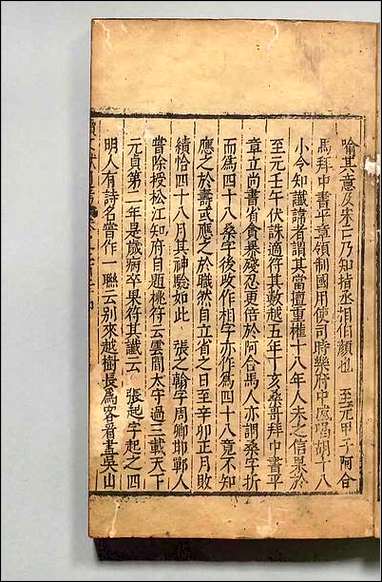 喻其意及宋亡乃知指丞相伯顏也　至元甲子阿合
馬拜中書平章領制國用使司時樂府中盛唱胡十八
小令知讖諱者謂其當擅重權十八年人未之信果於
至元壬午伏誅適符其數越五年丁亥桑哥拜中書平
章立尚書省貪暴殘忍更倍於阿合馬人亦謂桑字折
而爲四十八桑字後改作相字亦作爲四十八竟不知
應之於壽或應之於職然自立省之日至辛卯正月敗
績恰四十八月其神驗如此　張之翰字周卿邯鄲人
嘗除授松江知府自題桃符云雲間太守過三載天下
元貞第二年是歲病卒果符其讖云　張起字起之四
明人有詩名嘗作一聯云別來越樹長爲客看盡吳山